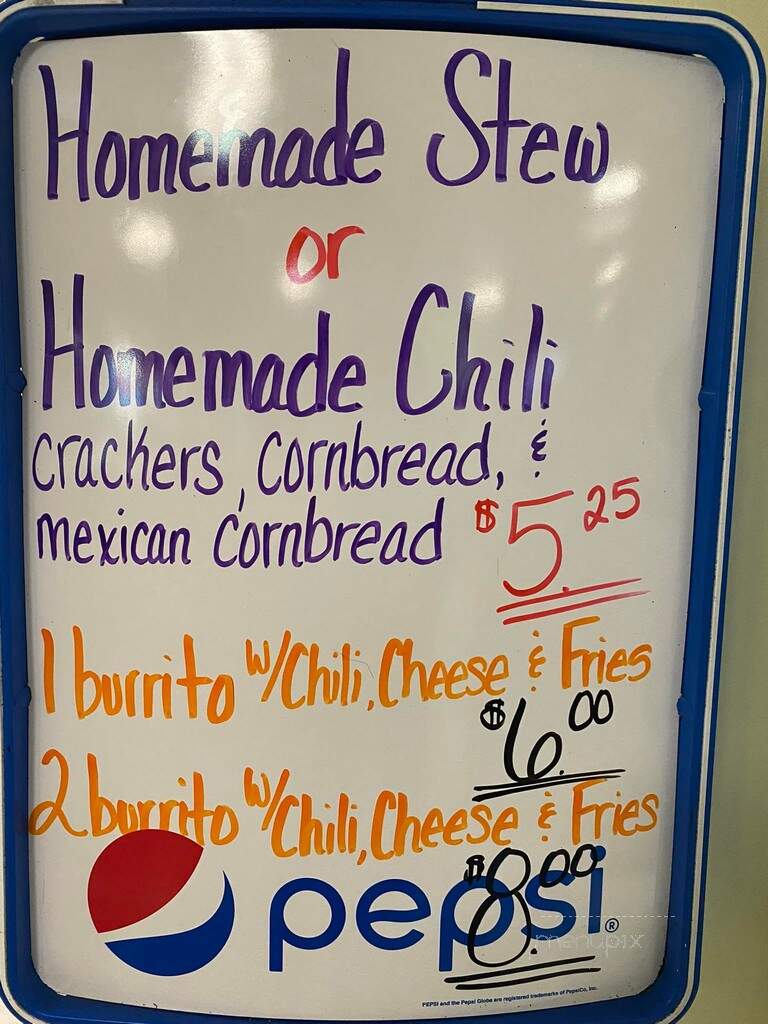 Homemade Stew
or
Homemade Chili
crackers, cornbread, &
mexican cornbread $5.25
1 burrito w/Chili, Cheese & Fries
$6.00
2 burrito w/Chili, Cheese & Fries
$8.00
pepsi®
menupix
PEPSI and the Pepsi Globe are registered trademarks of PepsiCo, Inc.